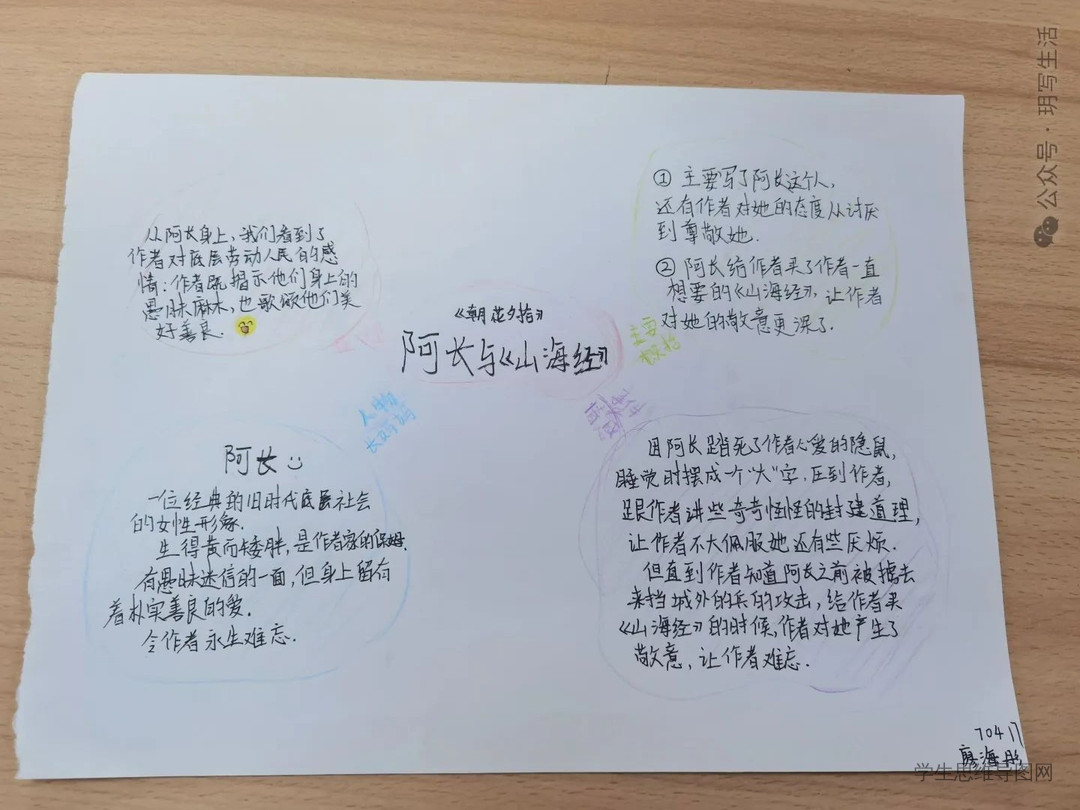 《朝花夕拾》
阿长与《山海经》
从阿长身上，我们看到了
作者对底层劳动人民的感
情：作者既揭示他们身上的
愚昧麻木，也歌颂他们美
好善良.
主要
概括
① 主要写了阿长这个人，
还有作者对她的态度从讨厌
到尊敬她.
② 阿长给作者买了作者一直
想要的《山海经》，让作者
对她的敬意更深了.
人物
阿长
一位经典的旧时代底层社会
的女性形象.
生得黄而矮胖，是作者家的保姆.
有愚昧迷信的一面，但身上留有
着朴实善良的爱.
令作者永生难忘.
因阿长踏死了作者心爱的隐鼠，
睡觉时摆成一个“大”字，压到作者，
跟作者讲些奇奇怪怪的封建道理，
让作者不大佩服她还有些厌烦.
但直到作者知道阿长之前被掳去
来挡城外的兵的攻击，给作者买
《山海经》的时候，作者对她产生了
敬意，让作者难忘.
70417
廖海彤
公众号·玥写生活
学生思维导图网